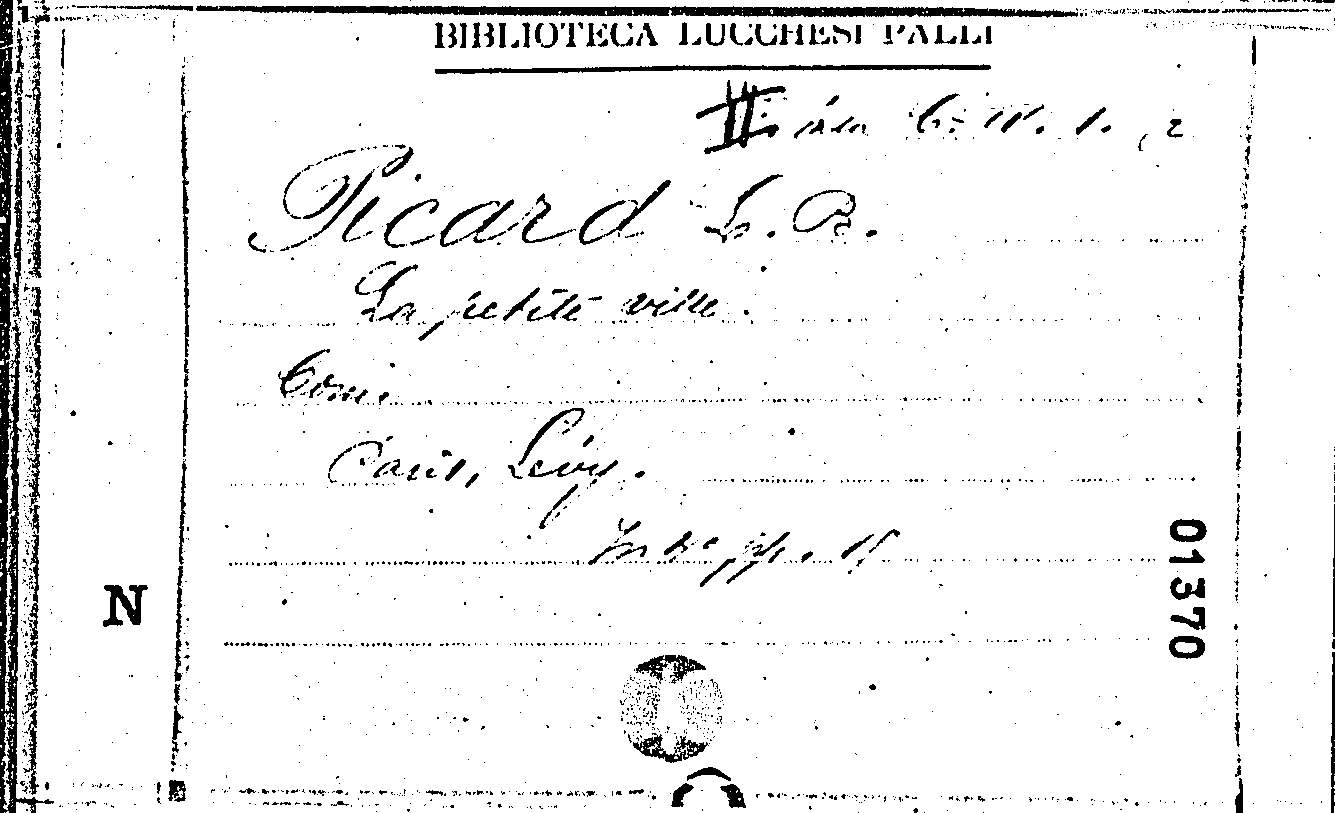 BIBLIOTECA LUCCHESI PALLI
II. C. III. 1. 2
Picard L. B.
La petite ville.
Com.
Paris, Lévy.
In 4° pp. 15
N
01370